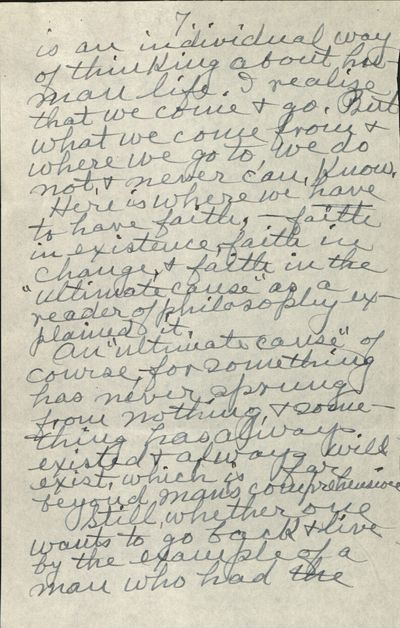 7
is an individual way
of thinking about hu-
man life. I realize
that we come & go. But
what we come from &
where we go to, we do
not, & never can, know.
Here is where we have
to have faith, – faith
in existance, faith in
change, & faith in the
"ultimate cause" as a
reader of philosophy ex-
plained it.
An "ultimate cause" of
course, for something
has never sprung
from nothing, & some-
thing has always
existed & always will
exist, which is far
beyond man's comprehension
Still, whether one
wants to go back & live
by the example of a
man who had the